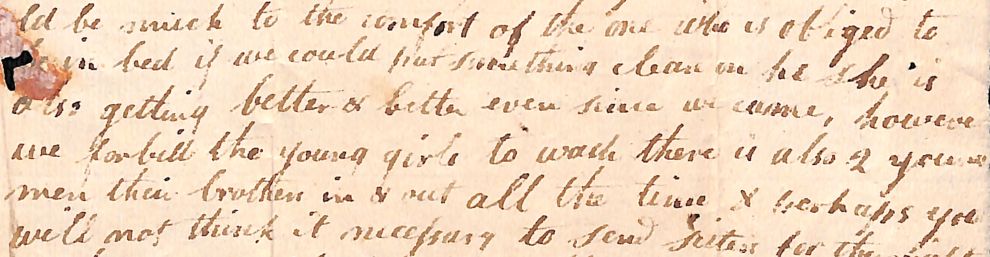 ld be much to the comfort of the one who is obliged to
in bed if we could put something clean on he & she is
also getting better & better even since we came, however
we forbill the young girls to wash there is also 2 young
men their brothers in & out all the time & perhaps you
will not think it necessary to send Sister for the